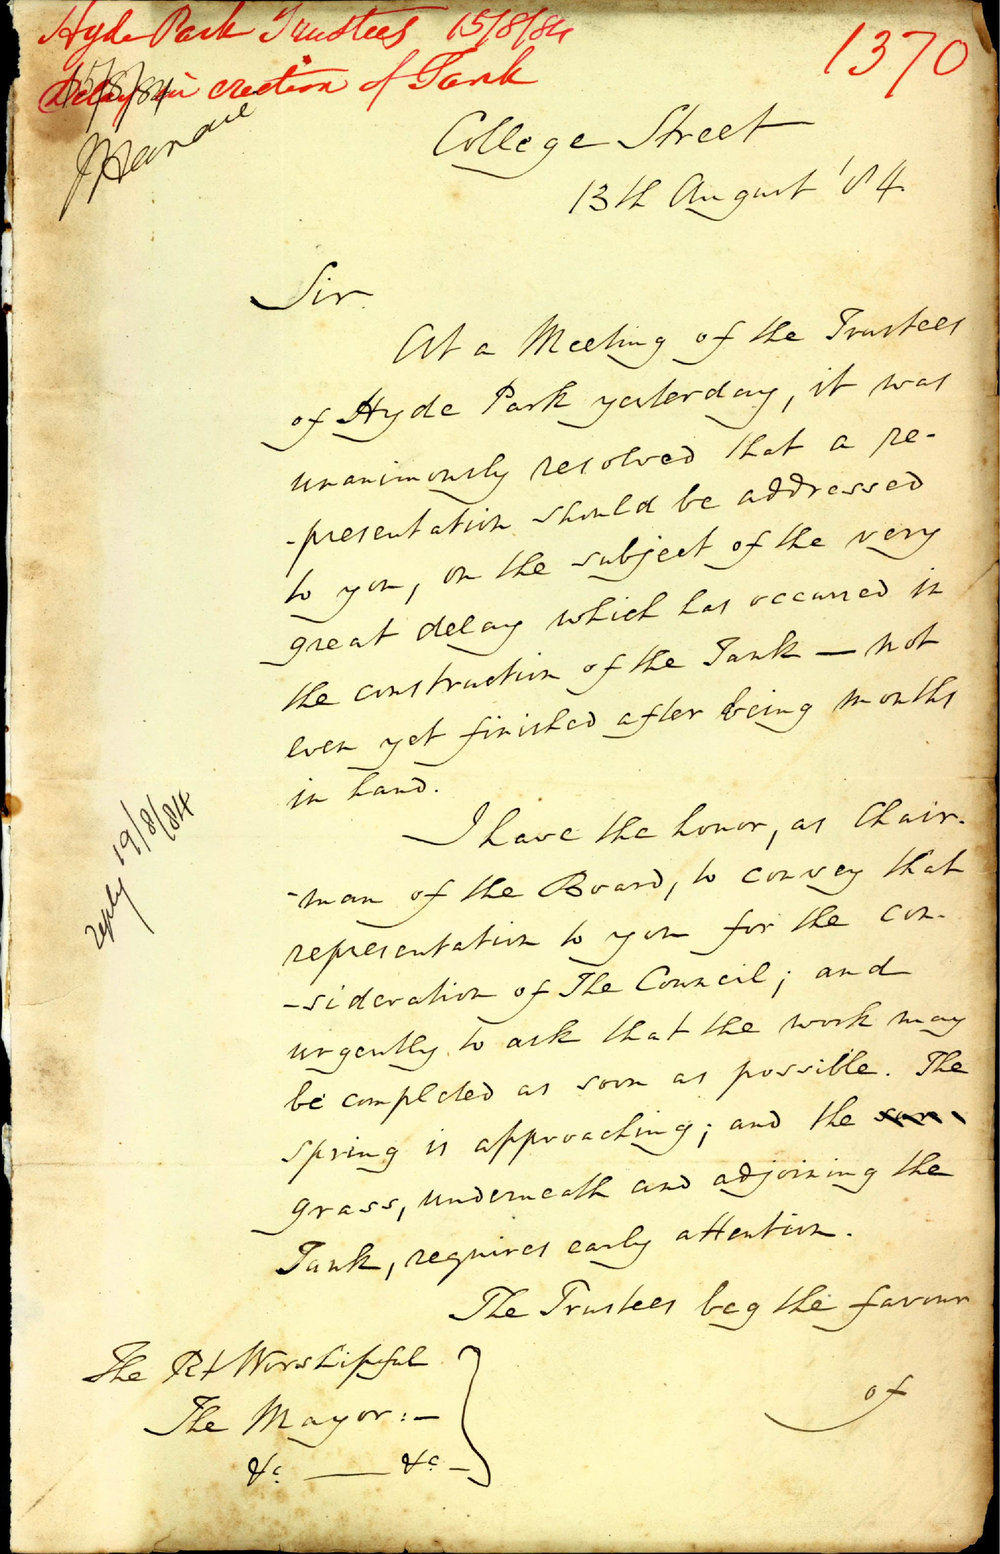 Hyde Park Trustees 15/8/84
Delay in erection of Tank
1370
15/8/84
College Street
13th August '84
Sir
At a Meeting of the Trustees
of Hyde Park yesterday, it was
unanimously resolved that a re-
-presentation should be addressed
to you, on the subject of the very
great delay which has occurred in
the construction of the Tank — not
even yet finished after being months
in hand.
I have the honor, as Chair-
-man of the Board, to convey that
representation to you for the con-
-sideration of The Council; and
urgently to ask that the work may
be completed as soon as possible. The
spring is approaching; and the
grass, underneath and adjoining the
Tank, requires early attention.
The Trustees beg the favour
of
reply 19/8/84
The Rt Worshipful
The Mayor:—
&c — &c —